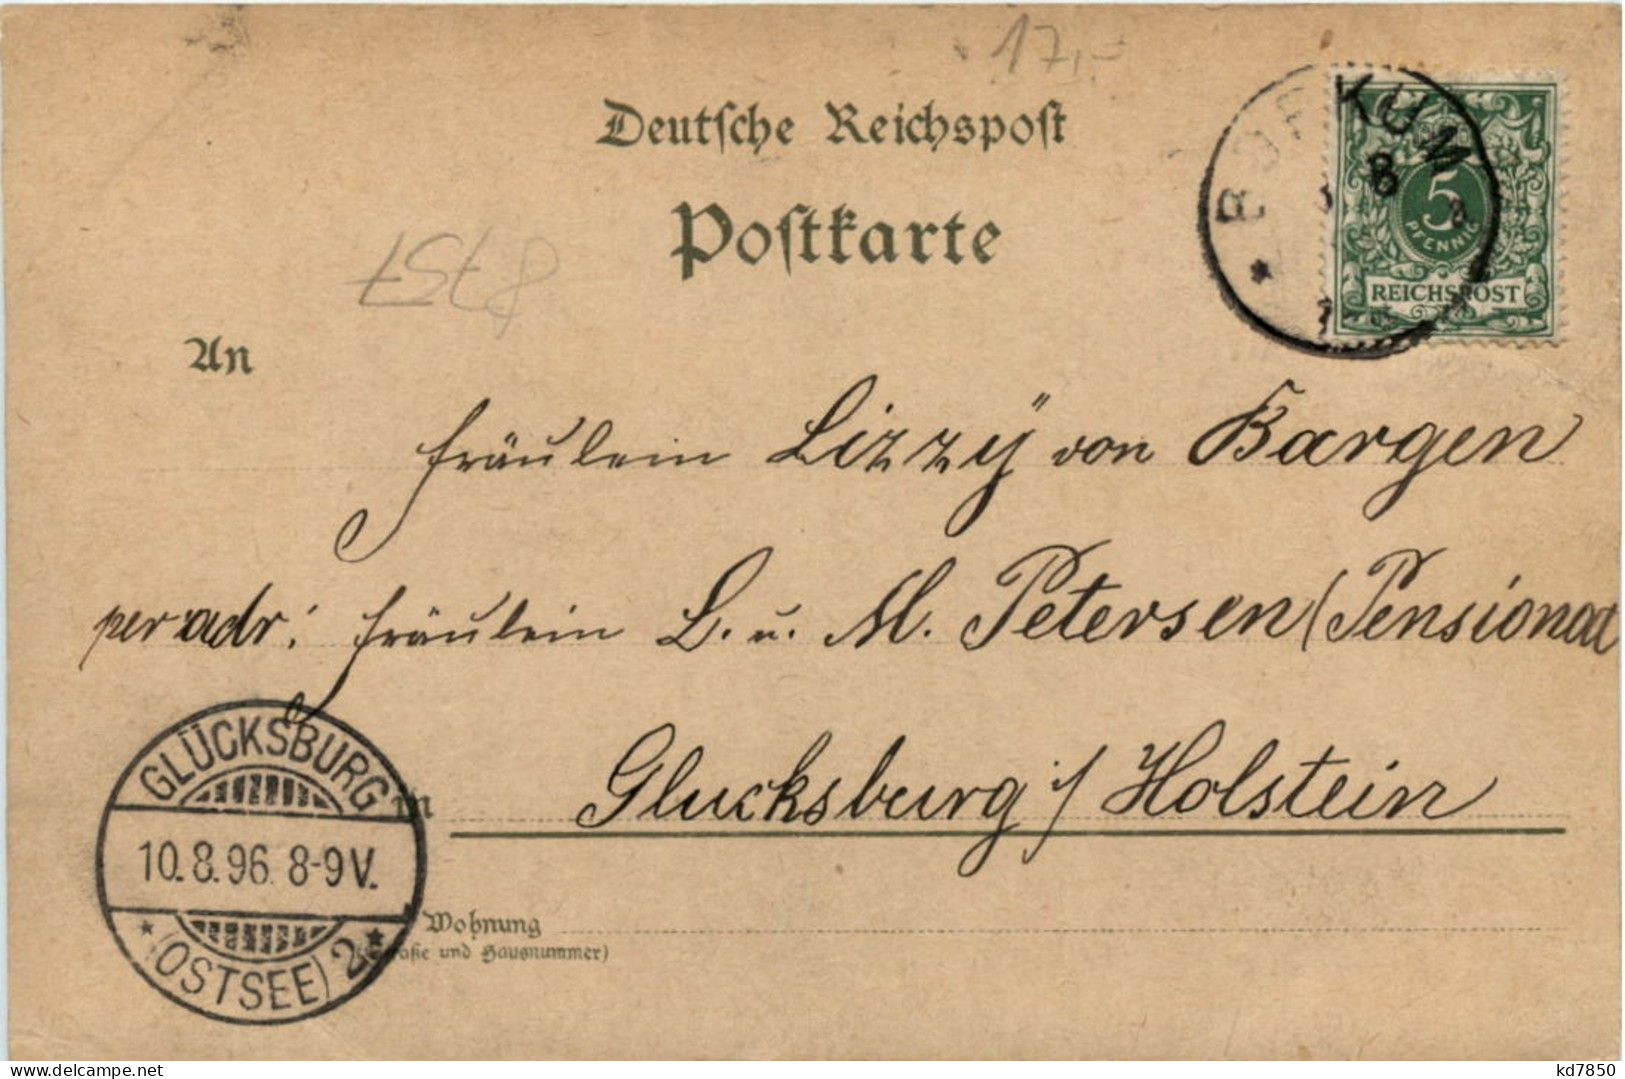 17,-
Deutsche Reichspost
Postkarte
BORKUM
8
5
PFENNIG
REICHSPOST
An
Fräulein Lizzÿ von Bargen
per adr: Fräulein L. u. M. Petersen (Pensionat
in Glucksburg i/ Holstein
GLÜCKSBURG
10.8.96. 8-9V.
* (OSTSEE) 2 *
Wohnung
(Straße und Hausnummer)
kd7850